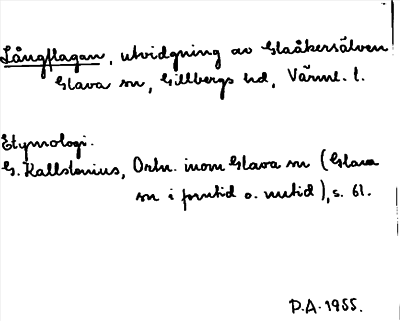 Långflagan, utvidgning av Glaåkersälven
Glava sn, Gillbergs hd, Värml. l.
Etymologi.
G. Kallstenius, Ortn. inom Glava sn (Glava
sn i forntid o. nutid), s. 61.
P.A. 1955.